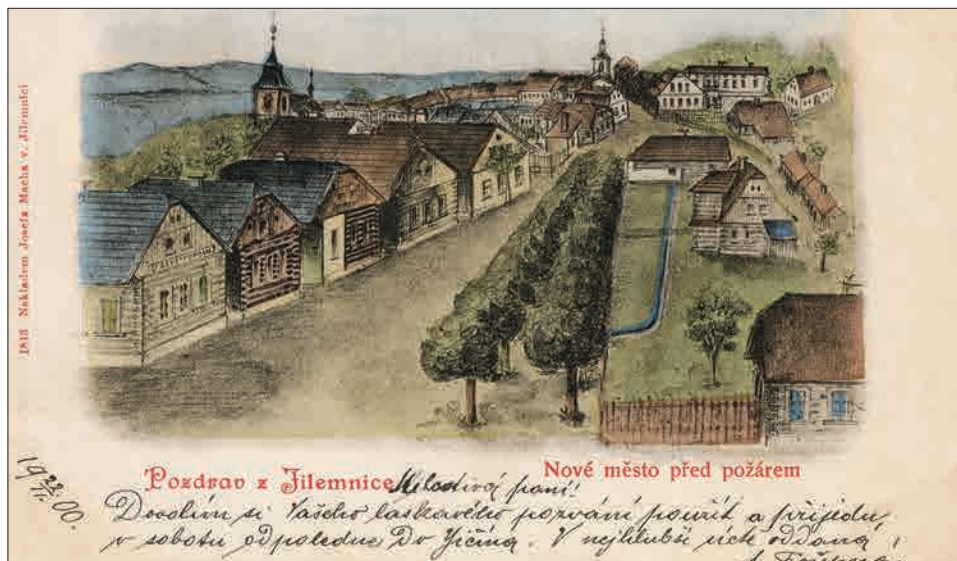 1813 Nakladem Josefa Macha v Jilemnici
Pozdrav z Jilemnice
Nové město před požárem
19 22/II. 00.
Milostivá paní!
Dovolím si Vašeho laskavého pozvání použít a přijedu
v sobotu odpoledne do Jičína. V nejhlubší úctě oddaná,